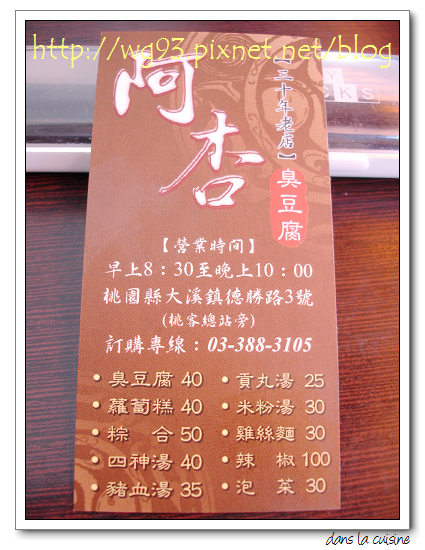 http://wg93.pixnet.net/blog
阿杏
【三十年老店】
臭豆腐
【營業時間】
早上8：30至晚上10：00
桃園縣大溪鎮德勝路3號
(桃客總站旁)
訂購專線：03-388-3105
•臭豆腐 40
•貢丸湯 25
•蘿蔔糕 40
•米粉湯 30
•粽 合 50
•雞絲麵 30
•四神湯 40
•辣 椒 100
•豬血湯 35
•泡 菜 30
dans la cuisine